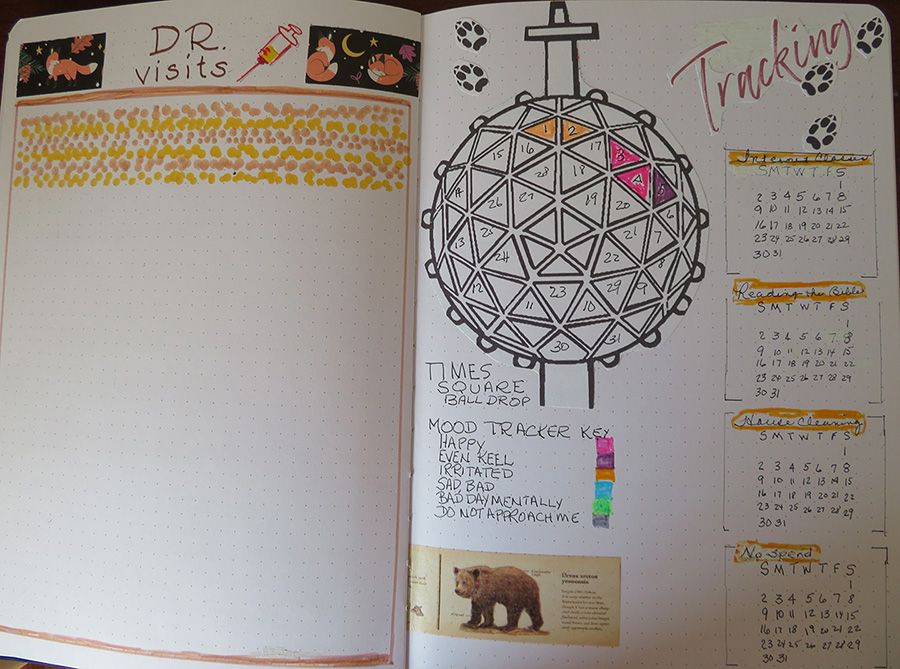 DR.
visits
Tracking
1 2
15 16 17 3
28 18 4 5
26 27 19 20 6
13 25 21 7
24 22 8
12 23 29 9
11 10
30 31
TIMES
SQUARE
BALL DROP
MOOD TRACKER KEY
HAPPY
EVEN KEEL
IRRITATED
SAD BAD
BAD DAY MENTALLY
DO NOT APPROACH ME
Ursus arctos
yesoensis
S M T W T F S
1
2 3 4 5 6 7 8
9 10 11 12 13 14 15
16 17 18 19 20 21 22
23 24 25 26 27 28 29
30 31
Reading the Bible
S M T W T F S
1
2 3 4 5 6 7 8
9 10 11 12 13 14 15
16 17 18 19 20 21 22
23 24 25 26 27 28 29
30 31
House Cleaning
S M T W T F S
1
2 3 4 5 6 7 8
9 10 11 12 13 14 15
16 17 18 19 20 21 22
23 24 25 26 27 28 29
30 31
No Spend
S M T W T F S
1
2 3 4 5 6 7 8
9 10 11 12 13 14 15
16 17 18 19 20 21 22
23 24 25 26 27 28 29
30 31